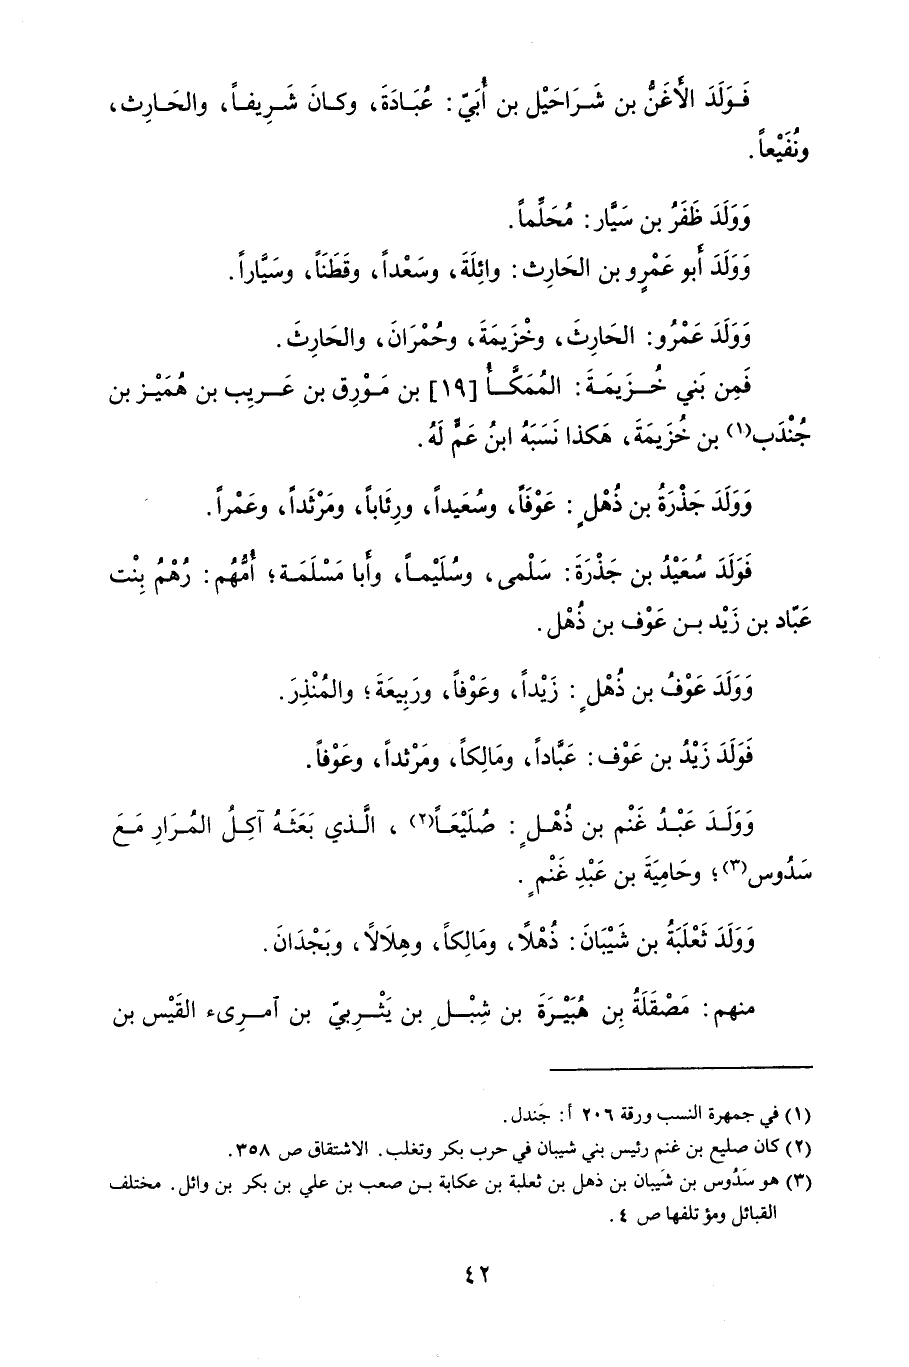 فَوَلَدَ الأَغَنُّ بن شَرَاحَيْل بن أُبَيّ: عُبَادَةَ، وكانَ شَرِيفاً، والحَارِث،
ونُفَيْعاً.
وَوَلَدَ ظَفَرُ بن سَيَّار: مُحَلِّماً.
وَوَلَدَ أبو عَمْرٍو بن الحَارِث: وائِلَةَ، وسَعْداً، وقَطَنَاً، وسَيَّاراً.
وَوَلَدَ عَمْرُو: الحَارِثَ، وخُزَيمَةَ، وحُمْرَانَ، والحَارِثَ.
فَمِن بَني خُزَيمَة: المُمَكَّأُ [١٩] بن مَوْرِق بن عَريِب بن هُمَيْز بن
جُنْدَب(١) بن خُزَيمَةَ، هَكذا نَسَبَهُ ابنُ عَمٍّ لَهُ.
وَوَلَدَ جَذْرَةُ بن ذُهْلٍ: عَوْفَاً، وسُعَيداً، ورِئَاباً، ومَرْثَداً، وعَمْراً.
فَوَلَدَ سُعَيْدُ بن جَذْرَةَ: سَلْمى، وسُلَيْماً، وأَبا مَسْلَمَة؛ أُمُّهُم: رُهْمُ بِنْت
عَبّاد بن زَيْد بن عَوْف بن ذُهْل.
وَوَلَدَ عَوْفُ بن ذُهْلٍ: زَيْداً، وعَوْفاً، ورَبِيعَةَ؛ والمُنْذِرَ.
فَوَلَدَ زَيْدُ بن عَوْف: عَبَّاداً، ومَالِكاً، ومَرْثداً، وعَوْفاً.
وَوَلَدَ عَبْدُ غَنْم بن ذُهْلٍ: صُلَيْعَاً(٢)، الَّذي بَعَثَهُ آكِلُ المُرَارِ مَعَ
سَدُوس(٣)؛ وحَامِيَةَ بن عَبْدِ غَنْمٍ.
وَوَلَدَ ثَعْلَبَةُ بن شَيْبَانَ: ذُهْلًا، ومَالِكاً، وهِلَالًا، وبَجْدَانَ.
منهم: مَصْقَلَةُ بِن هُبَيْرَةَ بن شِبْلِ بن يَثْرِبيّ بن آمرِىء القَيْس بن
(١) في جمهرة النسب ورقة ٢٠٦ أ: جَندل.
(٢) كان صليع بن غنم رئيس بني شيبان في حرب بكر وتغلب. الاشتقاق ص ٣٥٨.
(٣) هو سَدُوس بن شَيبان بن ذهل بن ثعلبة بن عكابة بن صعب بن علي بن بكر بن وائل. مختلف
القبائل ومؤتلفها ص ٤.
٤٢